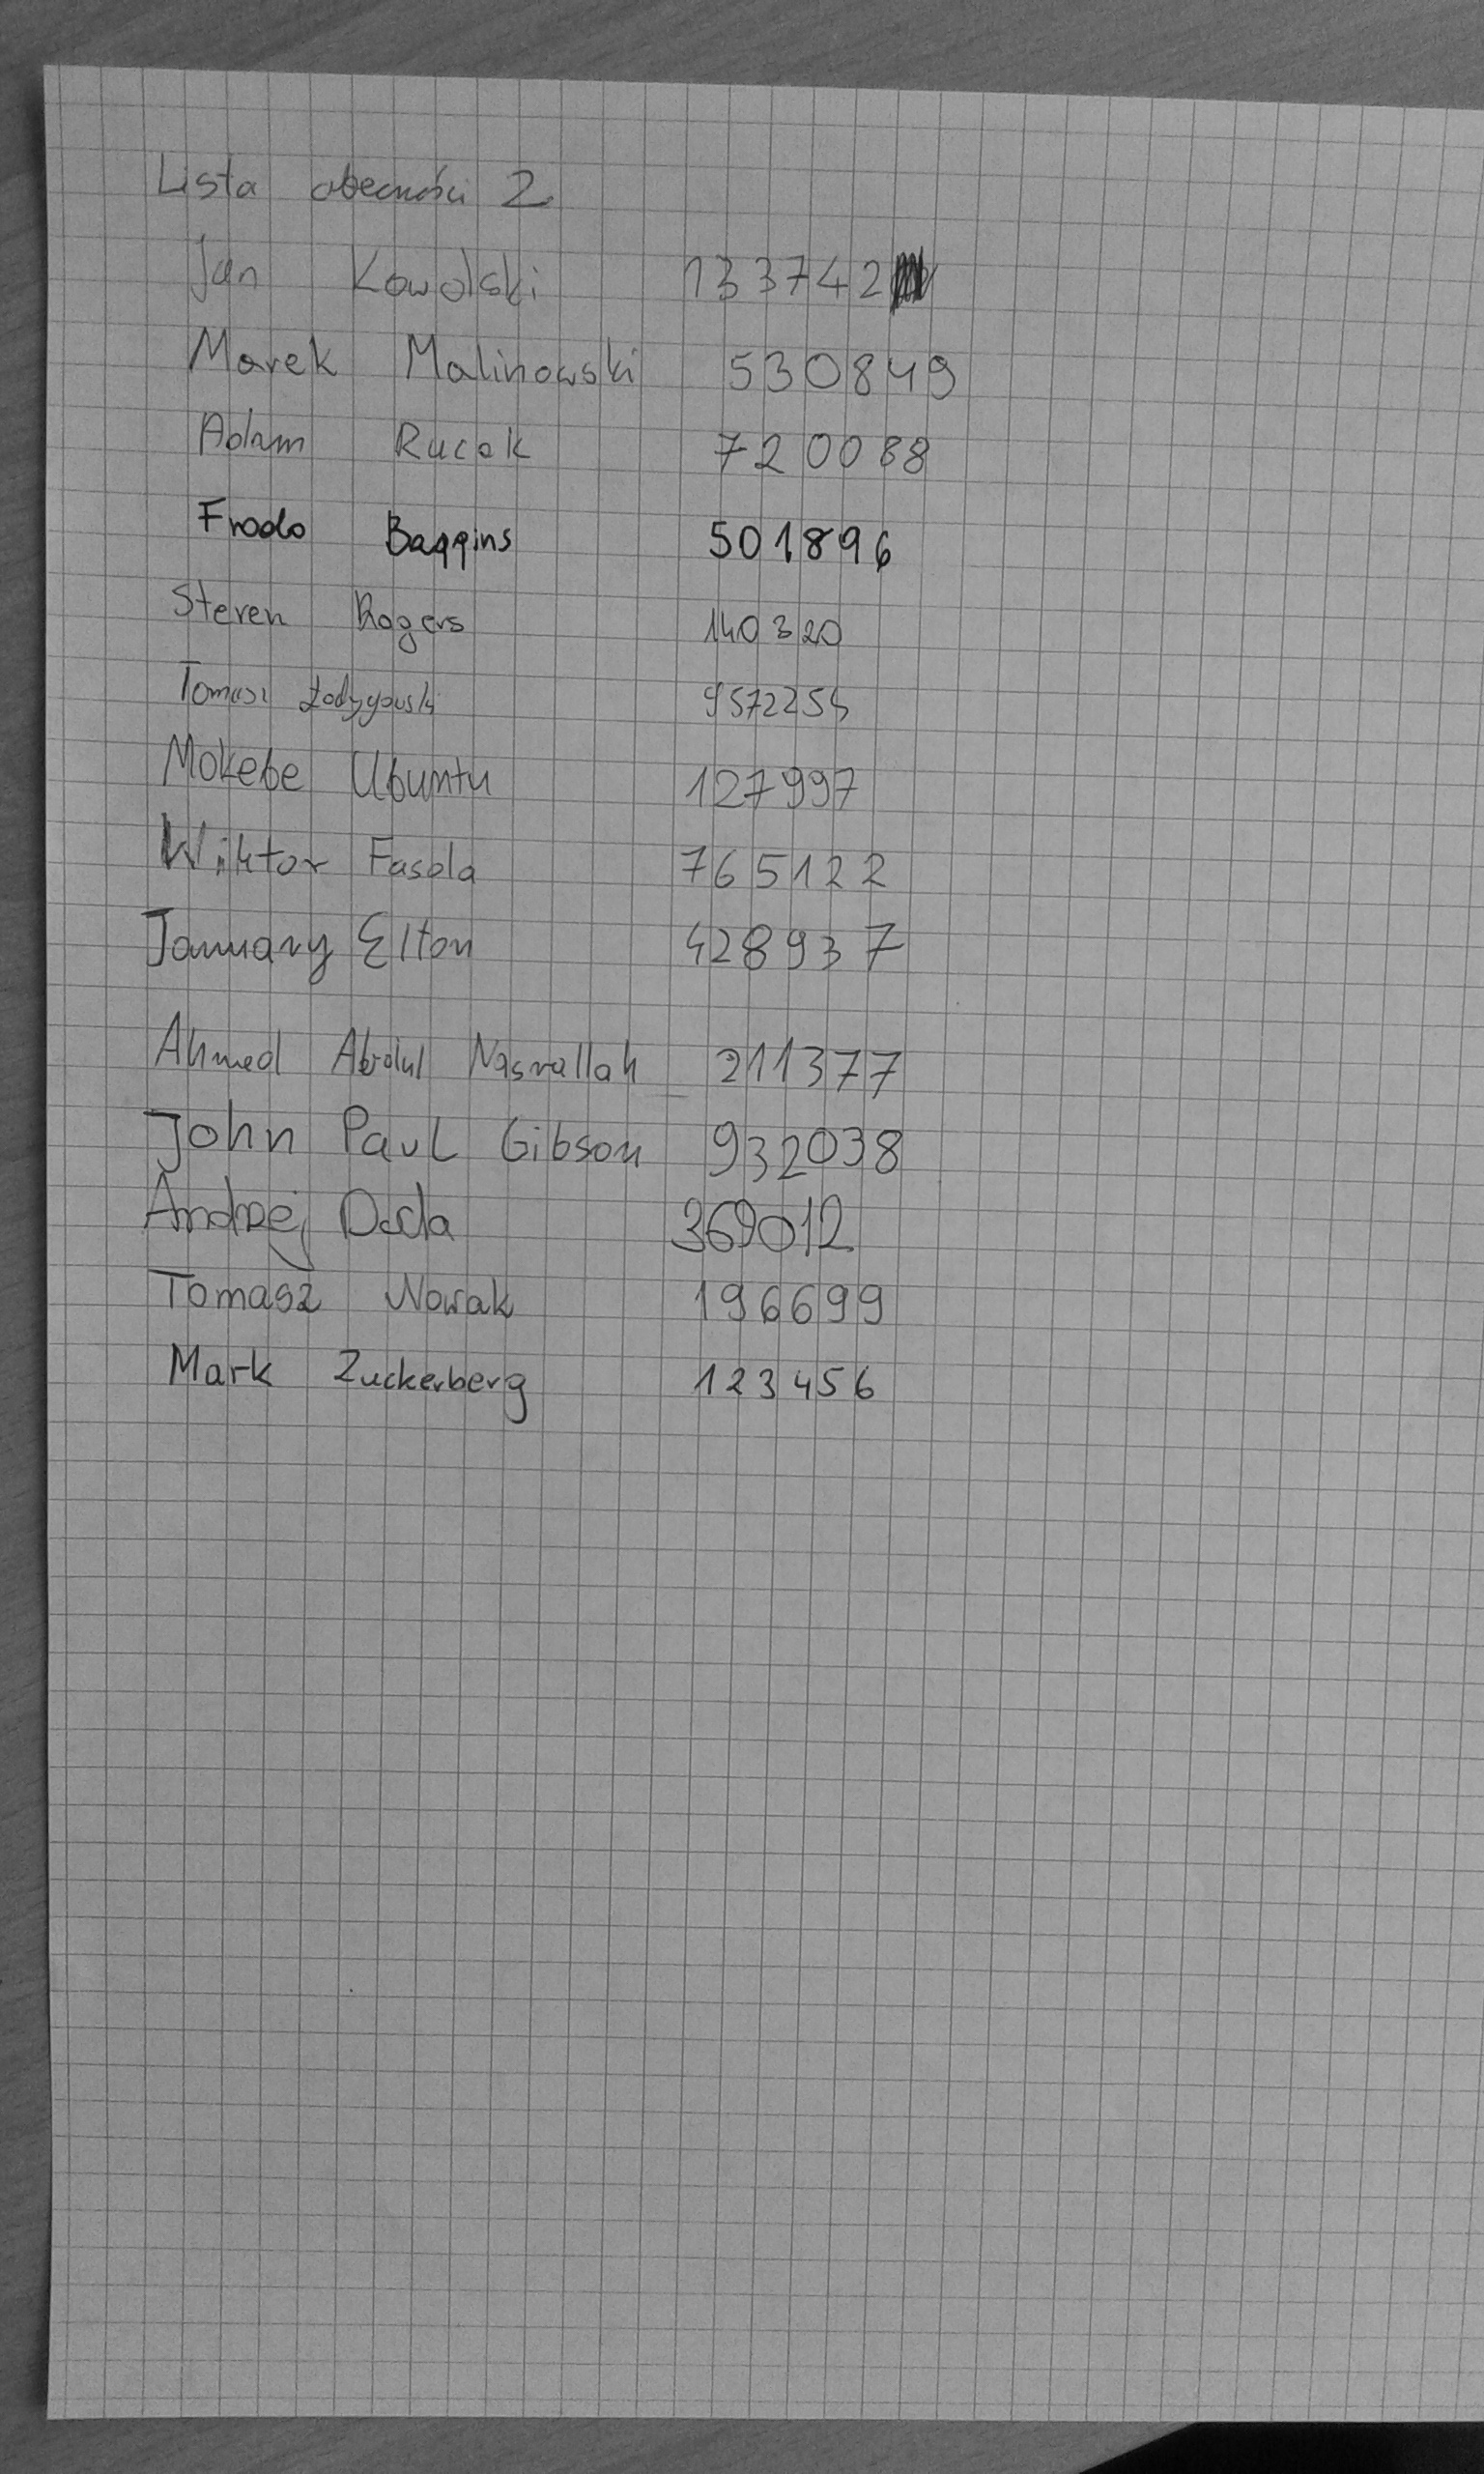 Lista obecności 2
Jan Kowalski 133742
Marek Malinowski 530849
Adam Rucak 720088
Frodo Baggins 501896
Steven Rogers 140320
Tomasz 9572255
Mokebe Ubuntu 127997
Wiktor Fasola 765122
January Elton 428937
Ahmed Abdul Nasrallah 211377
John Paul Gibson 932038
Andrzej 369012
Tomasz Nowak 196699
Mark Zuckerberg 123456